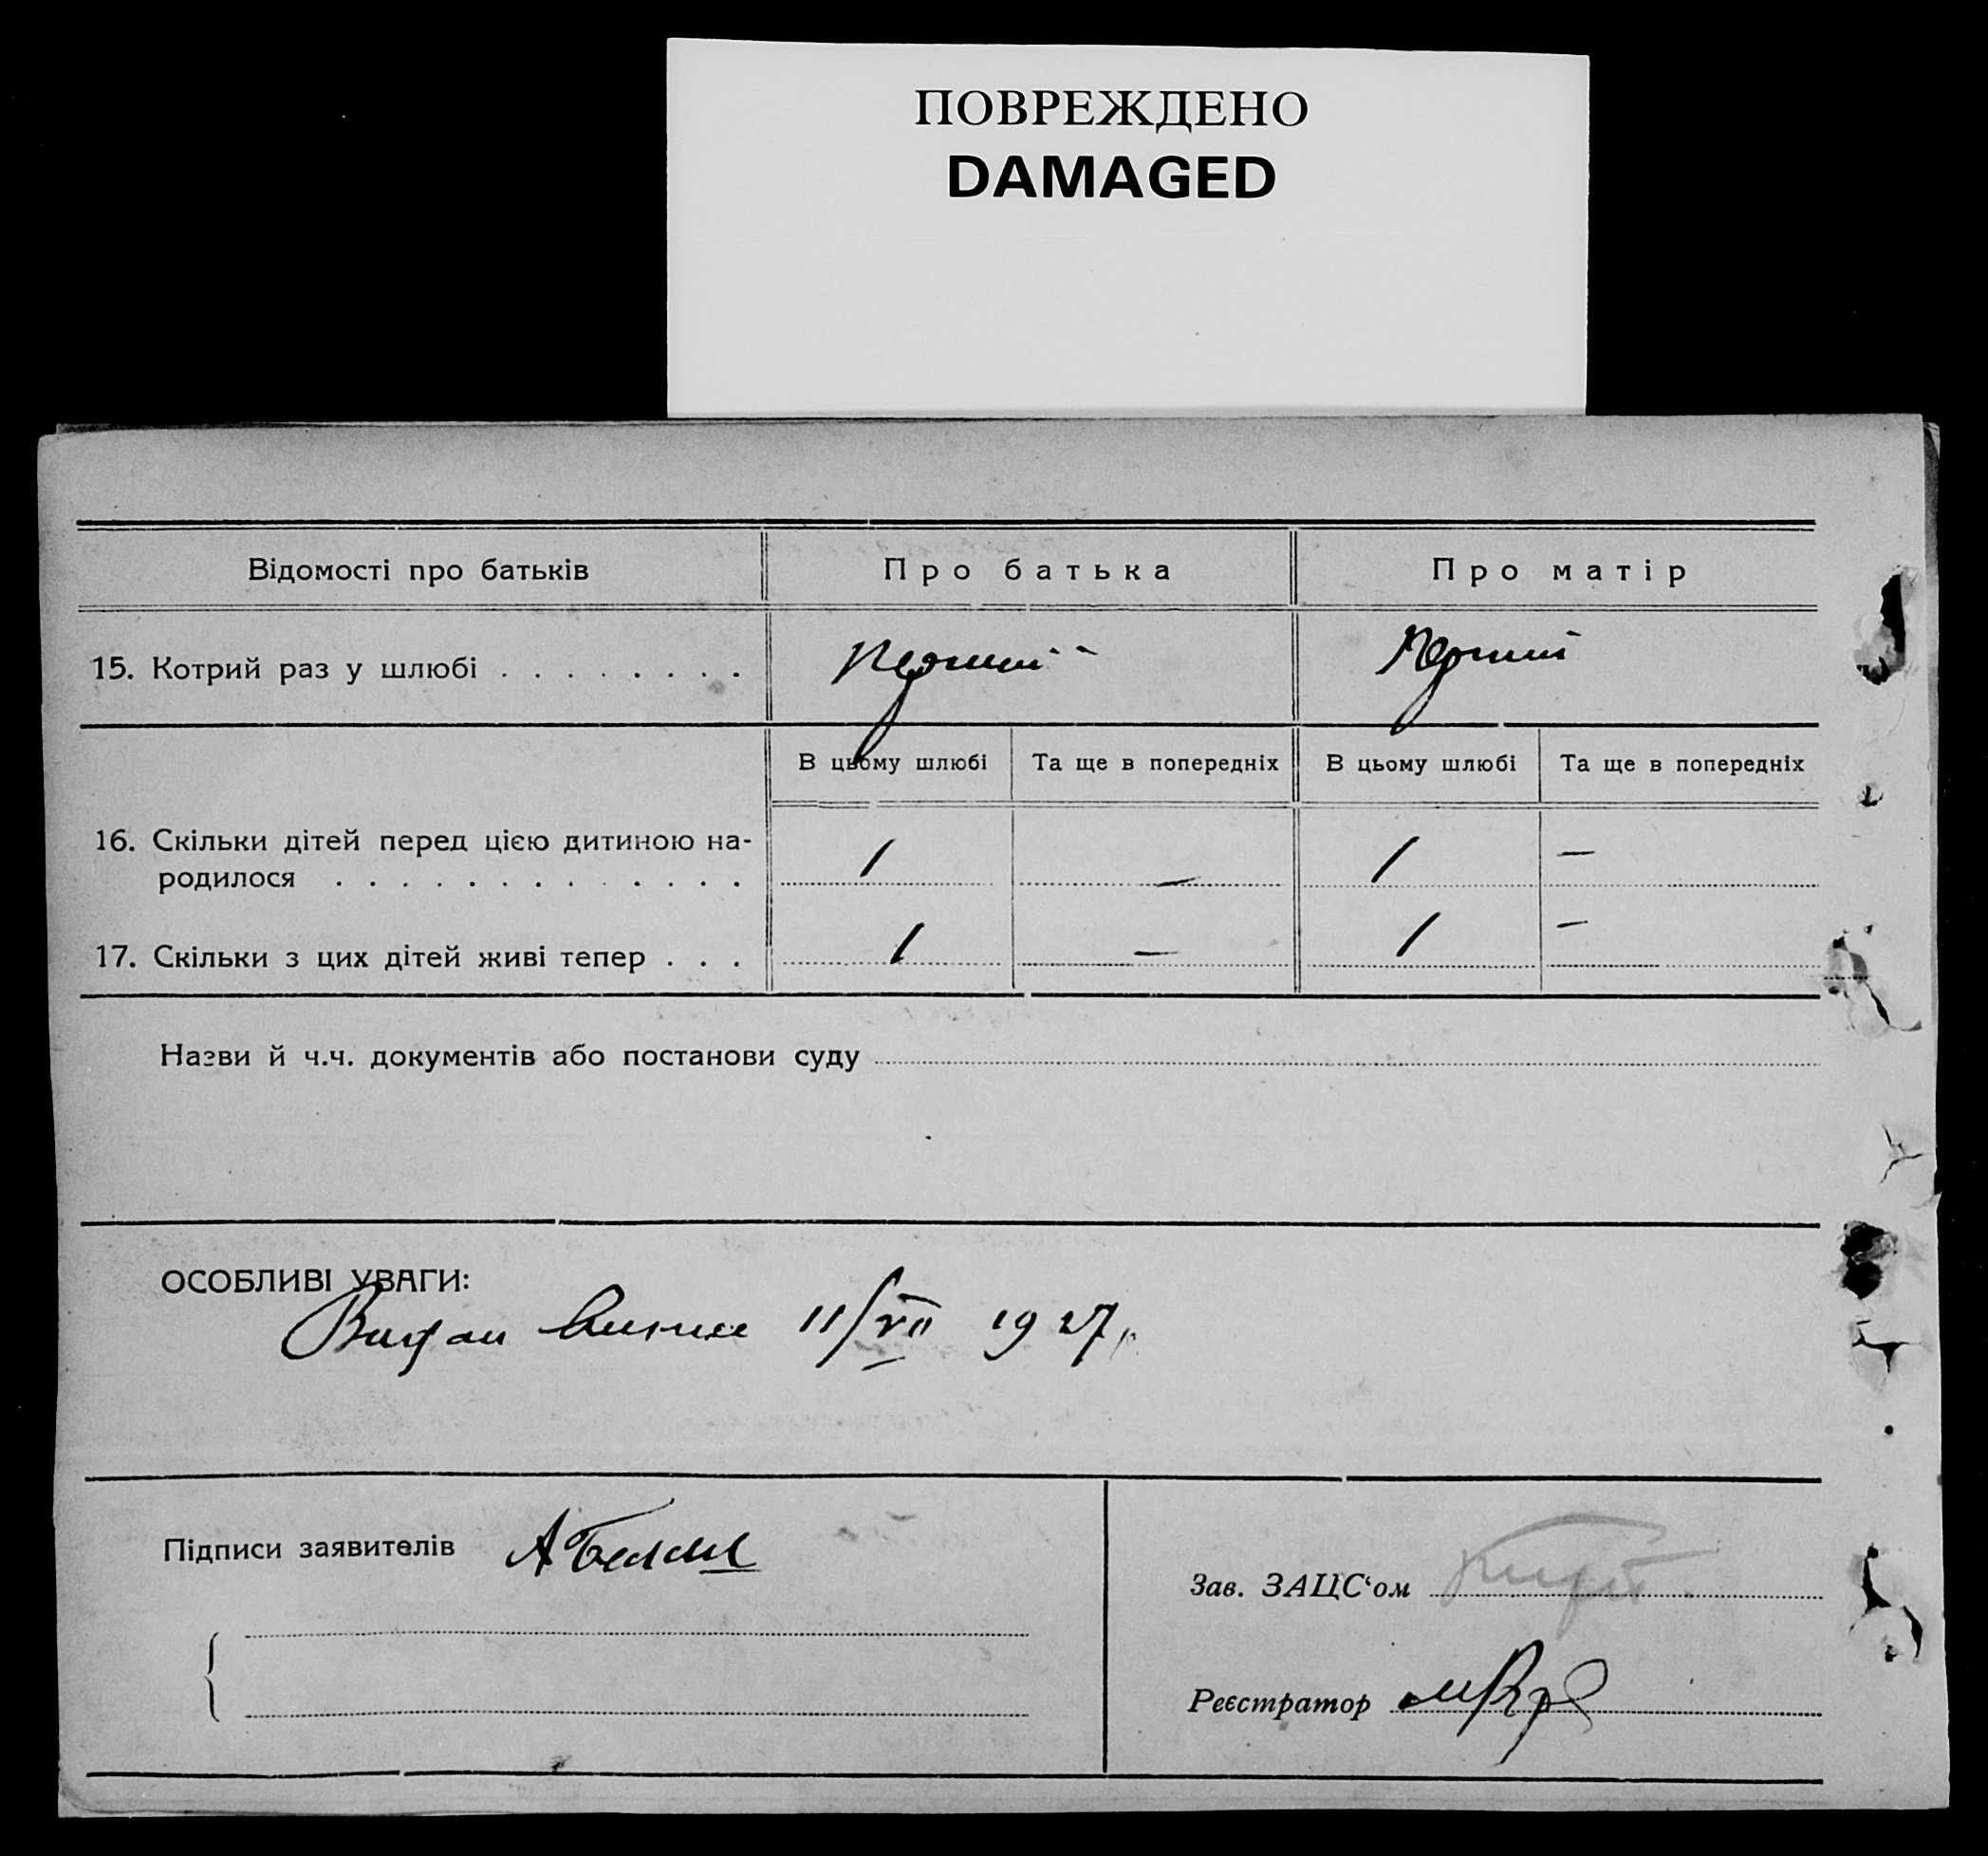 ПОВРЕЖДЕНО
DAMAGED
Відомості про батьків
Про батька
Про матір
15. Котрий раз у шлюбі . . . . . . . .
Перший
Перший
В цьому шлюбі
Та ще в попередніх
В цьому шлюбі
Та ще в попередніх
16. Скільки дітей перед цією дитиною на-
родилося . . . . . . . . . . . . .
1
—
1
—
17. Скільки з цих дітей живі тепер . . .
1
—
1
—
Назви й ч.ч. документів або постанови суду
ОСОБЛИВІ УВАГИ:
11/VII 1927
Підписи заявителів
Зав. ЗАЦС‘ом
Реєстратор